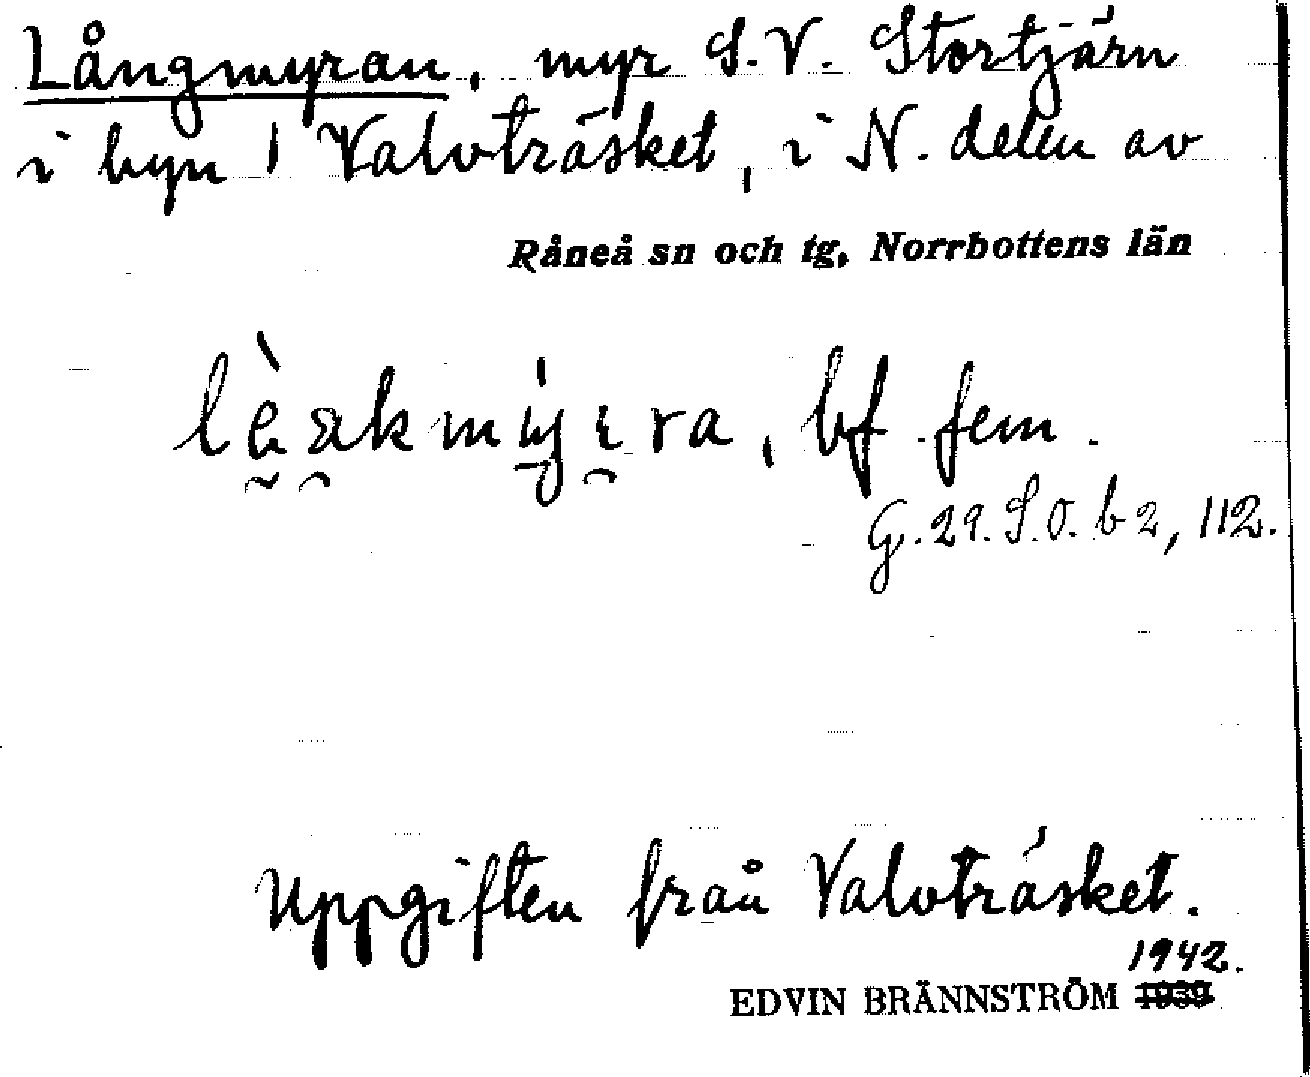 Långmyran, myr S.V. Stortjärn
i byn 1 Valvträsket, i N. delen av
Råneå sn och tg, Norrbottens län
bf. fem.
G. 29. S.O. b 2, 112.
Uppgiften från Valvträsket.
1942.
EDVIN BRÄNNSTRÖM 1939